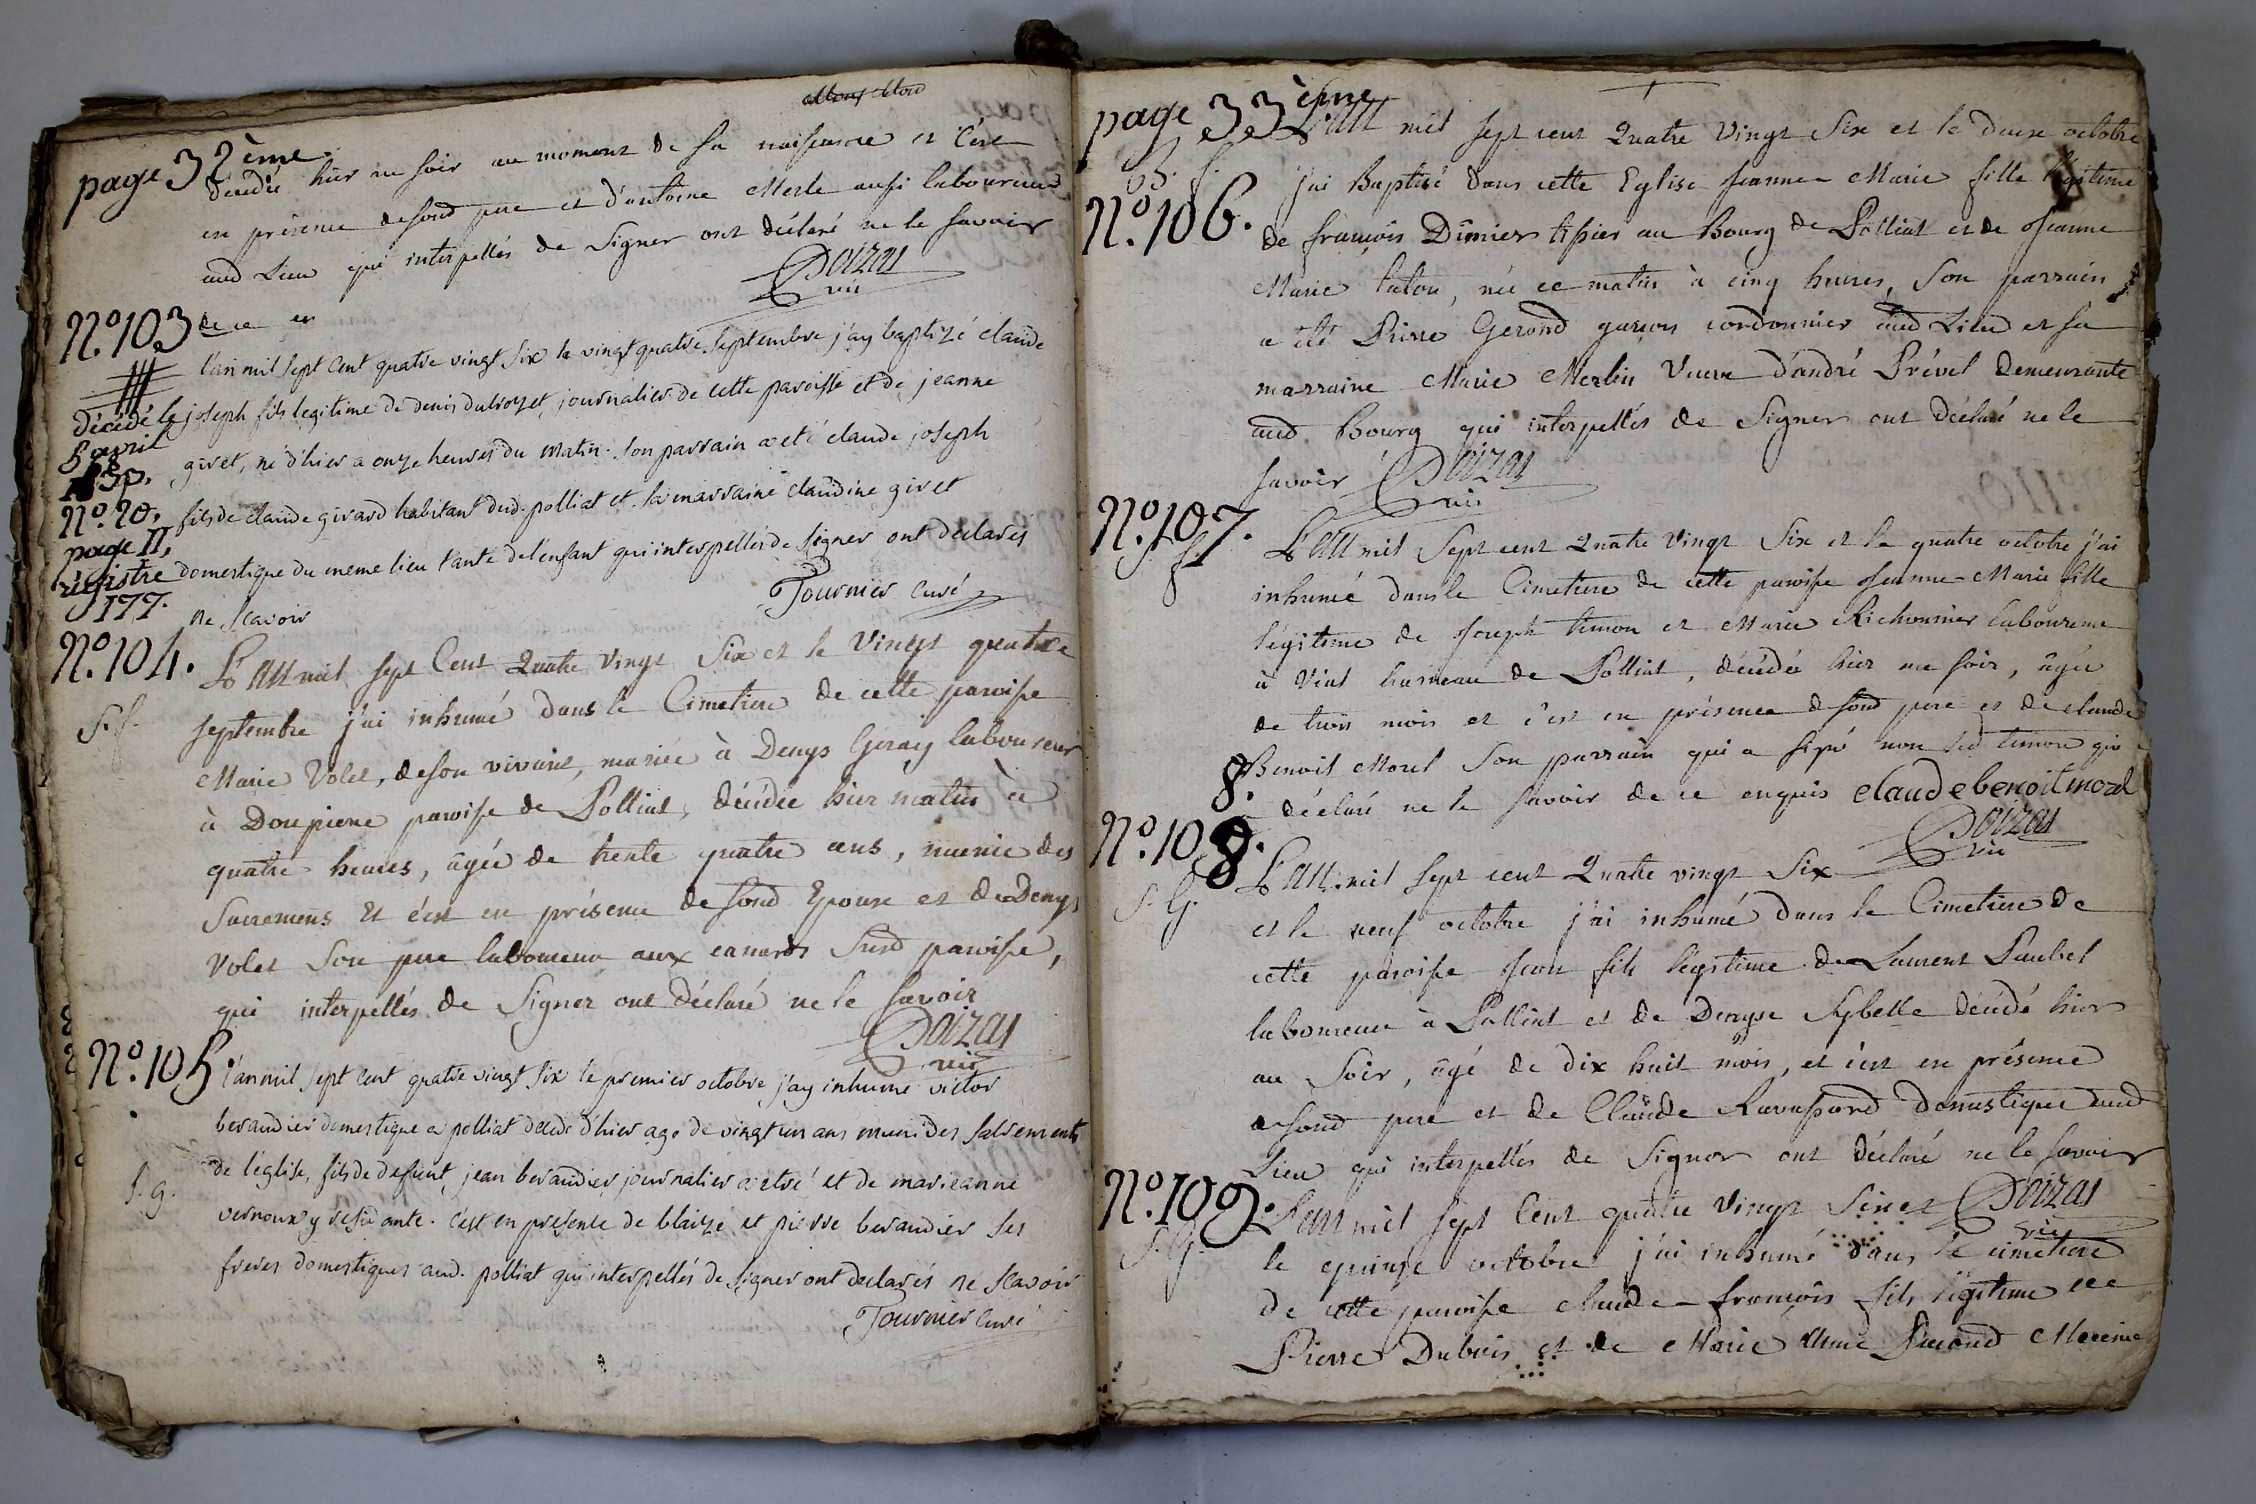 page 32ème.
décédée hier au soir au moment de sa naissance et c'est
en présence desond pere et d'antoine Merle aussi laboureur
aud Lieu qui interpellés de Signer ont déclaré ne le savoir
Doizas
vic
N°.103
de ce en
l'an mil sept cent quatre vingt six le vingt quatre septembre j'ay baptizé claude
joseph fils legitime de denis journalier de cette paroisse et de jeanne
givet, né d'hier a onze heures du matin. son parrain a eté claude joseph
fils de claude girard habitant dud. polliat et la marraine claudine givet
domestique du meme lieu tante de l'enfant qui interpellés de signer ont declarés
ne scavoir
Tournier curé
décédé le
5 avril
N°. 20.
page 11,
régistre
177.
N°.104.
S. f.
L'an mil sept Cent Quatre vingt Six et le Vingt quatre
septembre j'ai inhumé dans le Cimetiere de cette paroisse
Marie Volet, deson vivant, mariée à Denys Geray laboureur
à Doupierre paroisse de Polliat, décédée hier matin à
quatre heures, âgée de trente quatre ans, munie des
Sacremens Et c'est en présence desond Epoux et de Denys
Volet Son pere laboureur aux canards Susd paroisse,
qui interpellés de Signer ont déclaré ne le savoir
Doizas
vic
N°.105
l'an mil sept cent quatre vingt six le premier octobre j'ay inhumé victor
beraudier domestique a polliat decedé d'hier agé de vingt un ans muni des sacrements
de l'église, fils de defunt jean beraudier journalier et de marianne
vernoux y residante. c'est en presence de blaize et pierre beraudier ses
freres domestiques aud. polliat qui interpellés de signer ont declarés ne scavoir
Tournier curé
f. g.
page 33ème
N°.106.
L'an mil sept cent Quatre Vingt Six et le douze octobre
j'ai Baptisé dans cette Eglise Jeanne-Marie fille légitime
de françois Dimier tissier au Bourg de Polliat et de Jeanne
Marie laton, née ce matin à cinq heures, Son parrain
a été Pierre Gerand garçon cordonnier aud Lieu et sa
marraine Marie Merlin Veuve d'andré Prével demeurante
aud Bourg qui interpellés de Signer ont Déclaré ne le
savoir Doizas
vic
N°.107.
S. f.
L'an mil Sept cent Quatre Vingt Six et le quatre octobre j'ai
inhumé dans le Cimetiere de cette paroisse Jeanne-Marie fille
légitime de Joseph timon et Marie Richonnier laboureurs
à Vial hameau de Polliat, décédée hier au soir, âgée
de trois mois et c'est en présence desond pere et de claude
Benoit Morel Son parrain qui a signé non led timon qui
a déclaré ne le savoir de ce enquis claude benoit moral
Doizas
vic
8.
N°.108.
S. G.
L'an mil sept cent Quatre vingt Six
et le neuf octobre j'ai inhumé dans le Cimetiere de
cette paroisse Jean fils légitime de Laurent Paubel
laboureur à Polliat et de Denyse Sybelle décédé hier
au Soir, âgé de dix huit mois, et c'est en présence
desond pere et de Claude Ravassard domestique aud
Lieu qui interpellés de Signer ont déclaré ne le savoir
Doizas
vic
N°.109.
S. G.
L'an mil sept Cent quatre Vingt Six et
le quinze octobre j'ai inhumé dans le cimetiere
de cette paroisse claude-françois fils légitime de
Pierre Dubois et de Marie